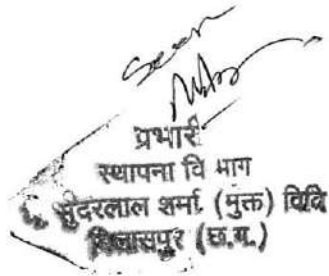 Seen
प्रभारी
स्थापना वि भाग
सुंदरलाल शर्मा (मुक्त) विवि
बिलासपुर (छ.ग.)